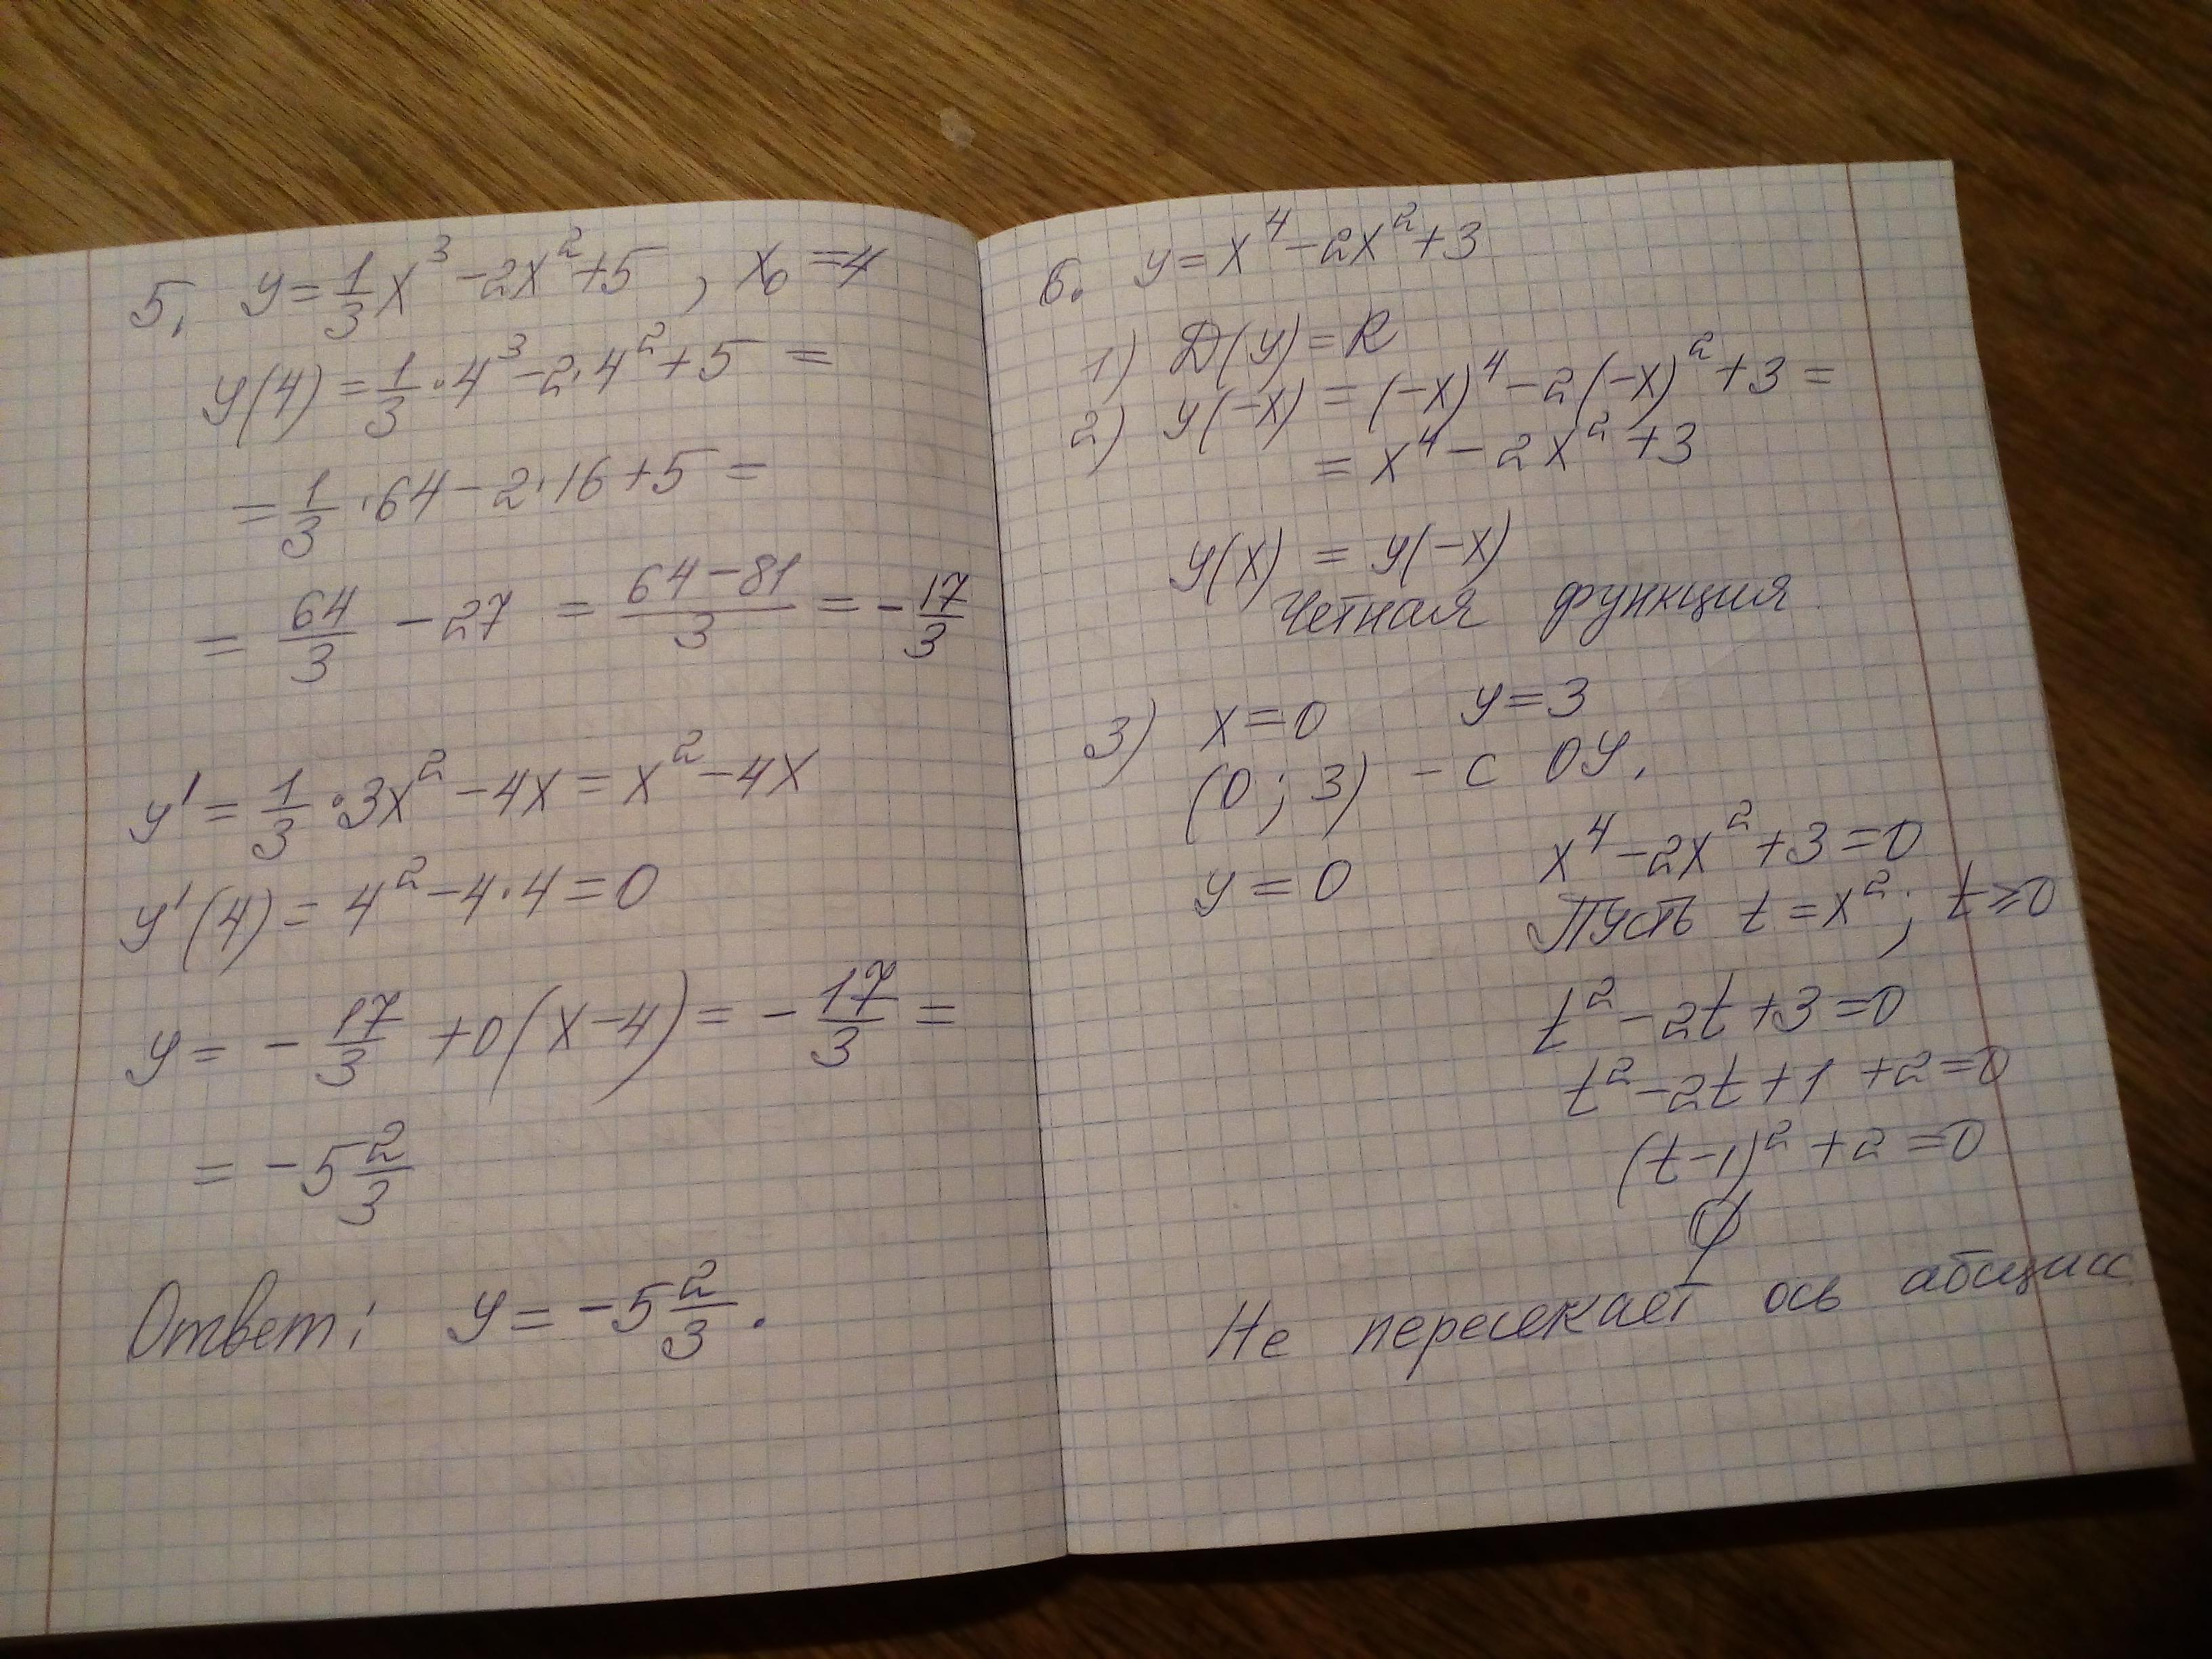 5. y = 1/3 x³ - 2x² + 5 , x₀ = 4
y(4) = 1/3 · 4³ - 2 · 4² + 5 =
= 1/3 · 64 - 2 · 16 + 5 =
= 64/3 - 27 = (64 - 81)/3 = - 17/3
y' = 1/3 · 3x² - 4x = x² - 4x
y'(4) = 4² - 4 · 4 = 0
y = - 17/3 + 0(x - 4) = - 17/3 =
= -5 2/3
Ответ: y = -5 2/3.
6. y = x⁴ - 2x² + 3
1) D(y) = R
2) y(-x) = (-x)⁴ - 2(-x)² + 3 =
= x⁴ - 2x² + 3
y(x) = y(-x)
Четная функция
3) x = 0 y = 3
(0; 3) - с OY.
y = 0 x⁴ - 2x² + 3 = 0
Пусть t = x²; t ≥ 0
t² - 2t + 3 = 0
t² - 2t + 1 + 2 = 0
(t - 1)² + 2 = 0
∅
Не пересекает ось абсцисс